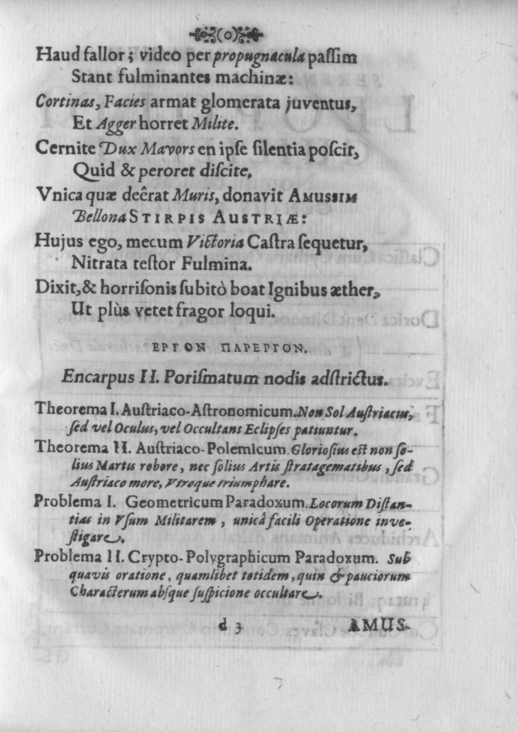 (o)
Haud fallor; video per propugnacula paſſim
Stant fulminantes machinæ:
Cortinas, Facies armat glomerata juventus,
Et Agger horret Milite.
Cernite Dux Mavors en ipſe ſilentia poſcit,
Quid & peroret diſcite,
Vnica quæ deêrat Muris, donavit AMUSSIM
Bellona STIRPIS AUSTRIÆ:
Hujus ego, mecum Victoria Caſtra ſequetur,
Nitrata teſtor Fulmina.
Dixit, & horriſonis ſubitò boat Ignibus æther,
Ut plùs vetet fragor loqui.
ΕΡΓΟΝ ΠΑΡΕΡΓΟΝ.
Encarpus II. Poriſmatum nodis adſtrictus.
Theorema I. Auſtriaco-Aſtronomicum. Non Sol Auſtriacus,
ſed vel Oculus, vel Occultans Eclipſes patiuntur.
Theorema II. Auſtriaco-Polemicum. Glorioſius eſt non ſo-
lius Martis robore, nec ſolius Artis ſtratagematibus, ſed
Auſtriaco more, Vtroque triumphare.
Problema I. Geometricum Paradoxum. Locorum Diſtan-
tias in Vſum Militarem, unicâ facili Operatione inve-
ſtigare.
Problema II. Crypto-Polygraphicum Paradoxum. Sub
quavis oratione, quamlibet totidem, quin & pauciorum
Characterum abſque ſuſpicione occultare.
d 3 AMUS-